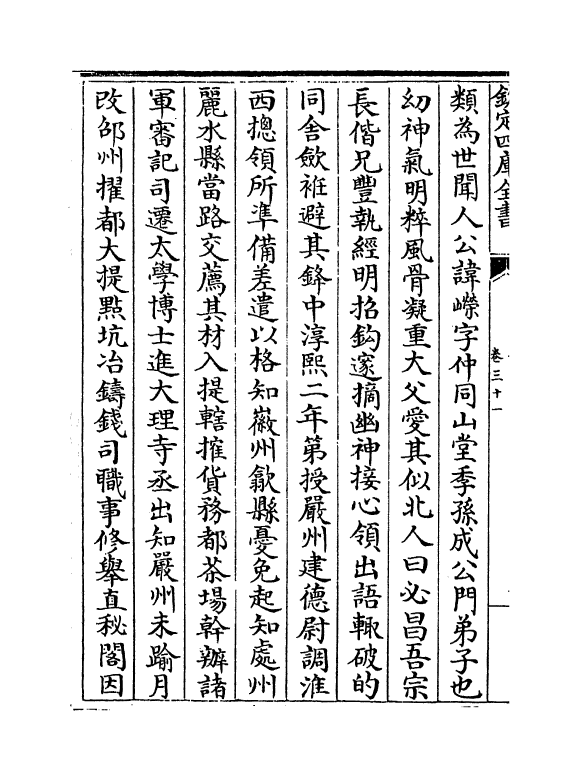 欽定四庫全書
卷三十一
類為世聞人公諱嶸字仲同山堂季孫成公門弟子也
幼神氣明粹風骨凝重大父愛其似北人曰必昌吾宗
長偕兄豐執經明招鈎邃摘幽神接心領出語輒破的
同舍斂袵避其鋒中淳熙二年第授嚴州建德尉調淮
西摠領所準備差遣以格知徽州歙縣憂免起知處州
麗水縣當路交薦其材入提轄搉貨務都茶場幹辦諸
軍審記司遷太學博士進大理寺丞出知嚴州未踰月
改邵州擢都大提㸃坑冶鑄錢司職事修舉直秘閣因